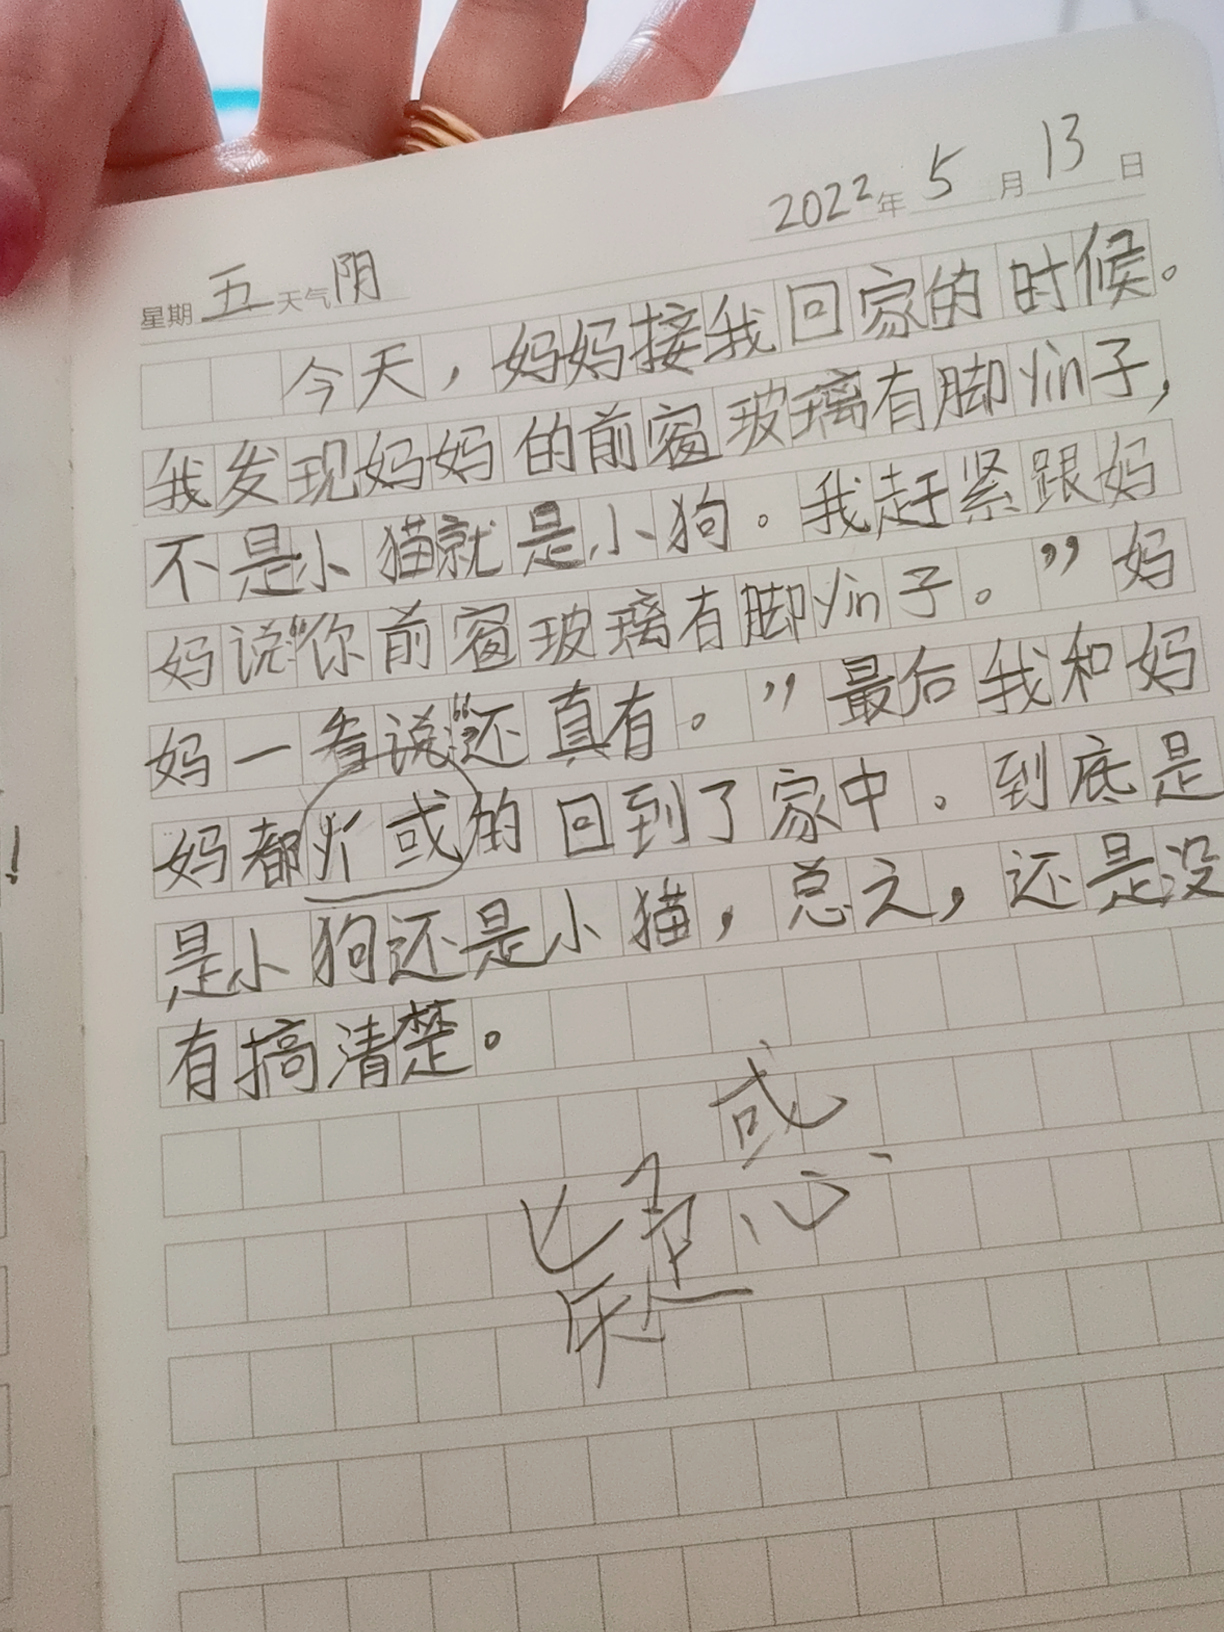 2022年5月13日
星期五 天气阴
今天，妈妈接我回家的时候。
我发现妈妈的前窗玻璃有脚yin子，
不是小猫就是小狗。我赶紧跟妈
妈说“你前窗玻璃有脚yin子。”妈
妈一看说“还真有。”最后我和妈
妈都 或的回到了家中。到底是
是小狗还是小猫，总之，还是没
有搞清楚。
惑